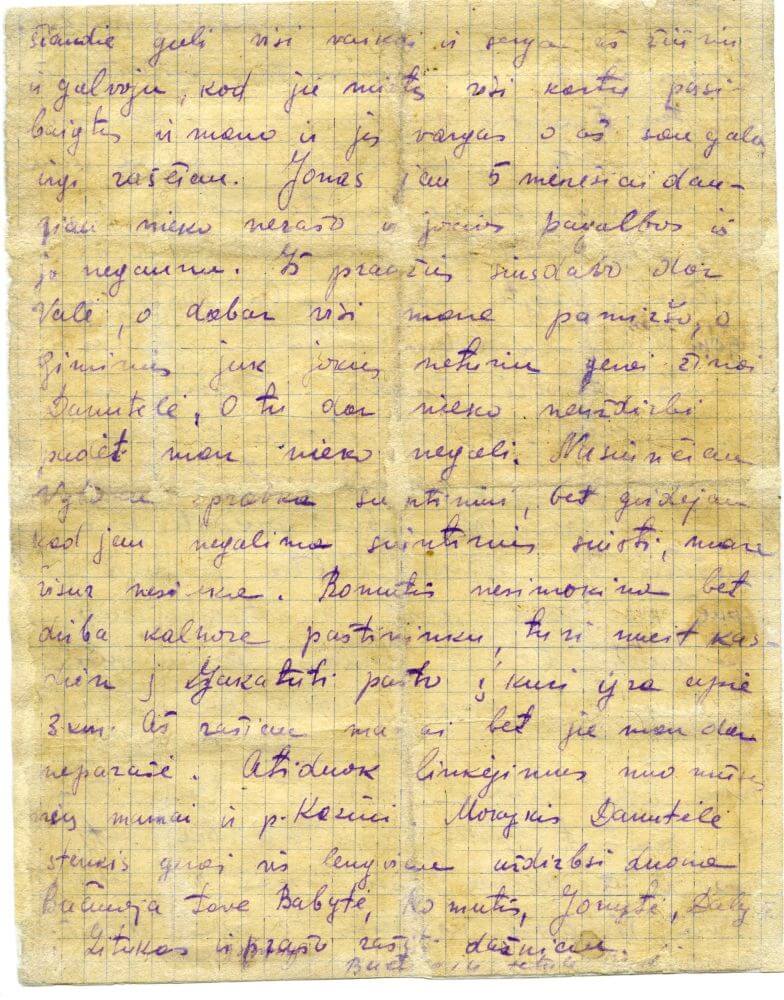 šiandie guli visi vaikai ir serga aš žiūriu
ir galvoju, kod jie mirtų visi kartu pasi-
baigtų ir mano ir jų vargas o aš
irgi raščiau. Jonas jau 5 mėnesiai dau-
giau nieko nerašo ir jokios pagalbos iš
jo negaunu. Iš pradžių siusdavo dar
Valė, o dabar visi mane pamiršo, o
giminės juk jokios neturiu gerai žinai
Danutėlė, O tu dar nieko neuždirbi
padėt man nieko negali. Nusiunčiau
siuntimui, bet girdėjau
kad jau negalima siuntinius siųsti, man
visur nesiseka. Romutis nesimokina bet
dirba kalhoze paštininku, turi nueit kas-
dien į paštą į kuri yra apie
3 km. Aš rašiau mamai bet jie man dar
neparašė. Atiduok linkėjimus nuo mūsų
visų mamai ir p. Kazūnei. Mokykis Danutėlė
stenkis gerai vis lengviau uždirbsi duona
Bučiuoja tave Babytė, Romutis, Jonytė, Daly
Litukas ir prašo rašyti dažniau.